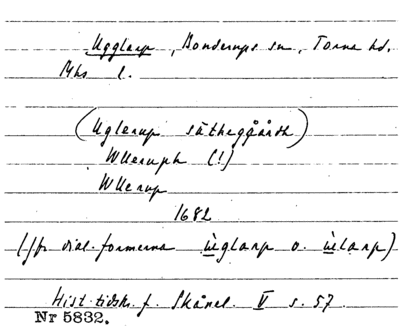 Ugglarp, Bonderups sn, Torna hd.
Mhs l.
(Uglerup säthegåårdh)
WUeruph (!)
WUerup
1682
(Jfr dial. formerna ùglarp o. ùlarp)
Hist. tidskr. f. Skånel. V s. 57.
Nr 5832.